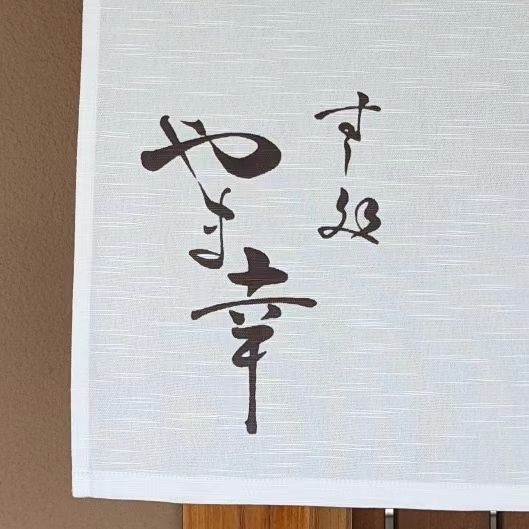 すし処
やま幸